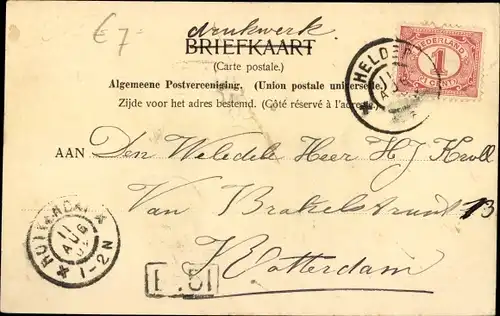 € 7- drukwerk
BRIEFKAART
(Carte postale.)
Algemeene Postvereeniging. (Union postale universelle.)
Zijde voor het adres bestemd. (Côté réservé à l'adresse.)
NEDERLAND
1
CENT
HELDER
11
AUG
AAN Den Weledele Heer H J
Van Brakelstraat 13
Rotterdam
11
AUG
1-2N